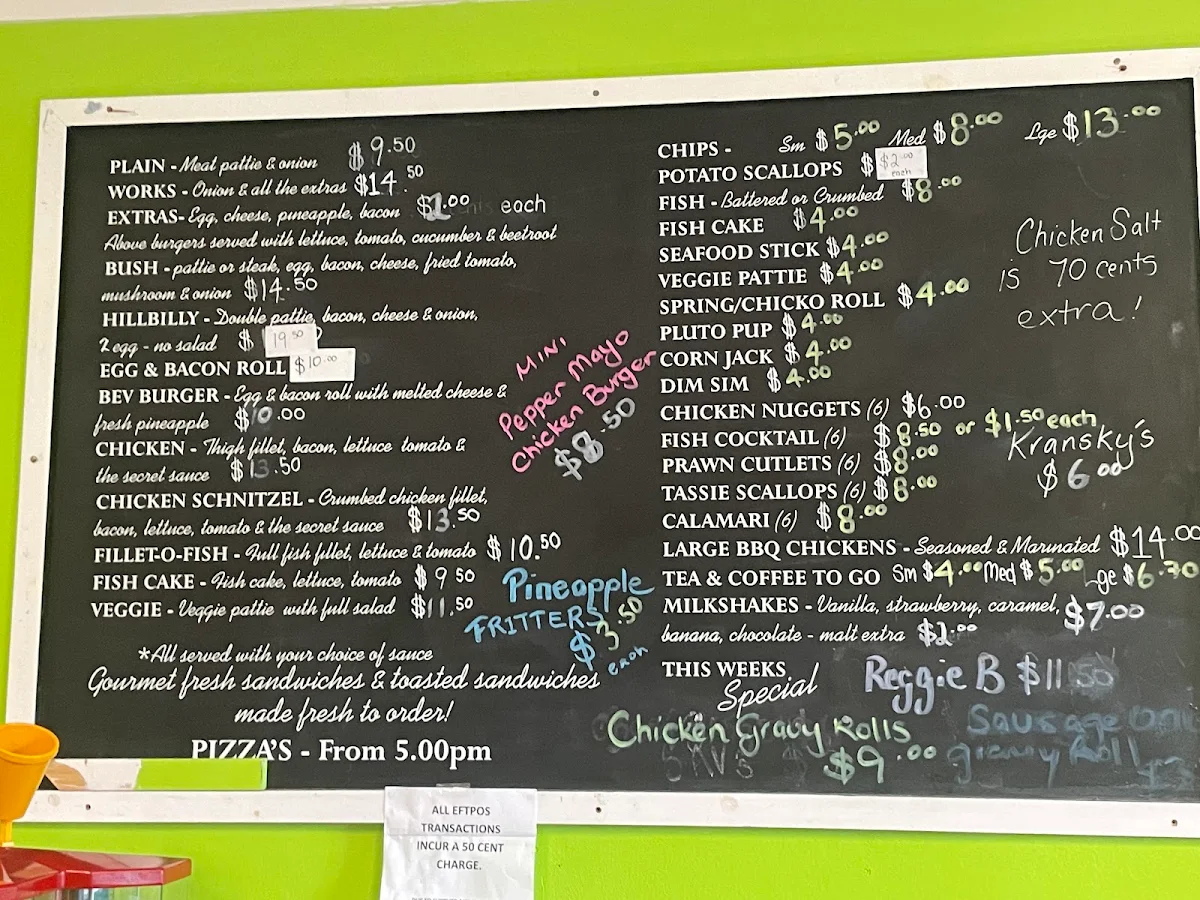 PLAIN - Meat pattie & onion $9.50
WORKS - Onion & all the extras $14.50
EXTRAS- Egg, cheese, pineapple, bacon $2.00 each
Above burgers served with lettuce, tomato, cucumber & beetroot
BUSH - pattie or steak, egg, bacon, cheese, fried tomato,
mushroom & onion $14.50
HILLBILLY - Double pattie, bacon, cheese & onion,
2 egg - no salad $ 19 50
EGG & BACON ROLL $10.00
BEV BURGER - Egg & bacon roll with melted cheese &
fresh pineapple $10.00
CHICKEN - Thigh fillet, bacon, lettuce tomato &
the secret sauce $13.50
CHICKEN SCHNITZEL - Crumbed chicken fillet,
bacon, lettuce, tomato & the secret sauce $13.50
FILLET-O-FISH - Full fish fillet, lettuce & tomato $10.50
FISH CAKE - Fish cake, lettuce, tomato $9 50
VEGGIE - Veggie pattie with full salad $11.50
*All served with your choice of sauce
Gourmet fresh sandwiches & toasted sandwiches
made fresh to order!
PIZZA'S - From 5.00pm
MINI
Pepper Mayo
Chicken Burger
$8.50
Pineapple
FRITTERS
$3.50
each
CHIPS - Sm $5.00 Med $8.00 Lge $13.00
POTATO SCALLOPS $ $2.00
each
FISH - Battered or Crumbed $8.00
FISH CAKE $4.00
SEAFOOD STICK $4.00
VEGGIE PATTIE $4.00
SPRING/CHICKO ROLL $4.00
PLUTO PUP $4.00
CORN JACK $4.00
DIM SIM $4.00
CHICKEN NUGGETS (6) $6.00
FISH COCKTAIL (6) $8.50 or $1.50 each
PRAWN CUTLETS (6) $8.00
TASSIE SCALLOPS (6) $8.00
CALAMARI (6) $8.00
LARGE BBQ CHICKENS - Seasoned & Marinated $14.00
TEA & COFFEE TO GO Sm $4.00 Med $5.00 Lge $6.70
MILKSHAKES - Vanilla, strawberry, caramel, $7.00
banana, chocolate - malt extra $2.00
Chicken Salt
is 70 cents
extra!
Kransky's
$6 00
THIS WEEKS
Special
Reggie B $11.50
Chicken Gravy Rolls
$9.00
Sausage
gravy Roll
ALL EFTPOS
TRANSACTIONS
INCUR A 50 CENT
CHARGE.